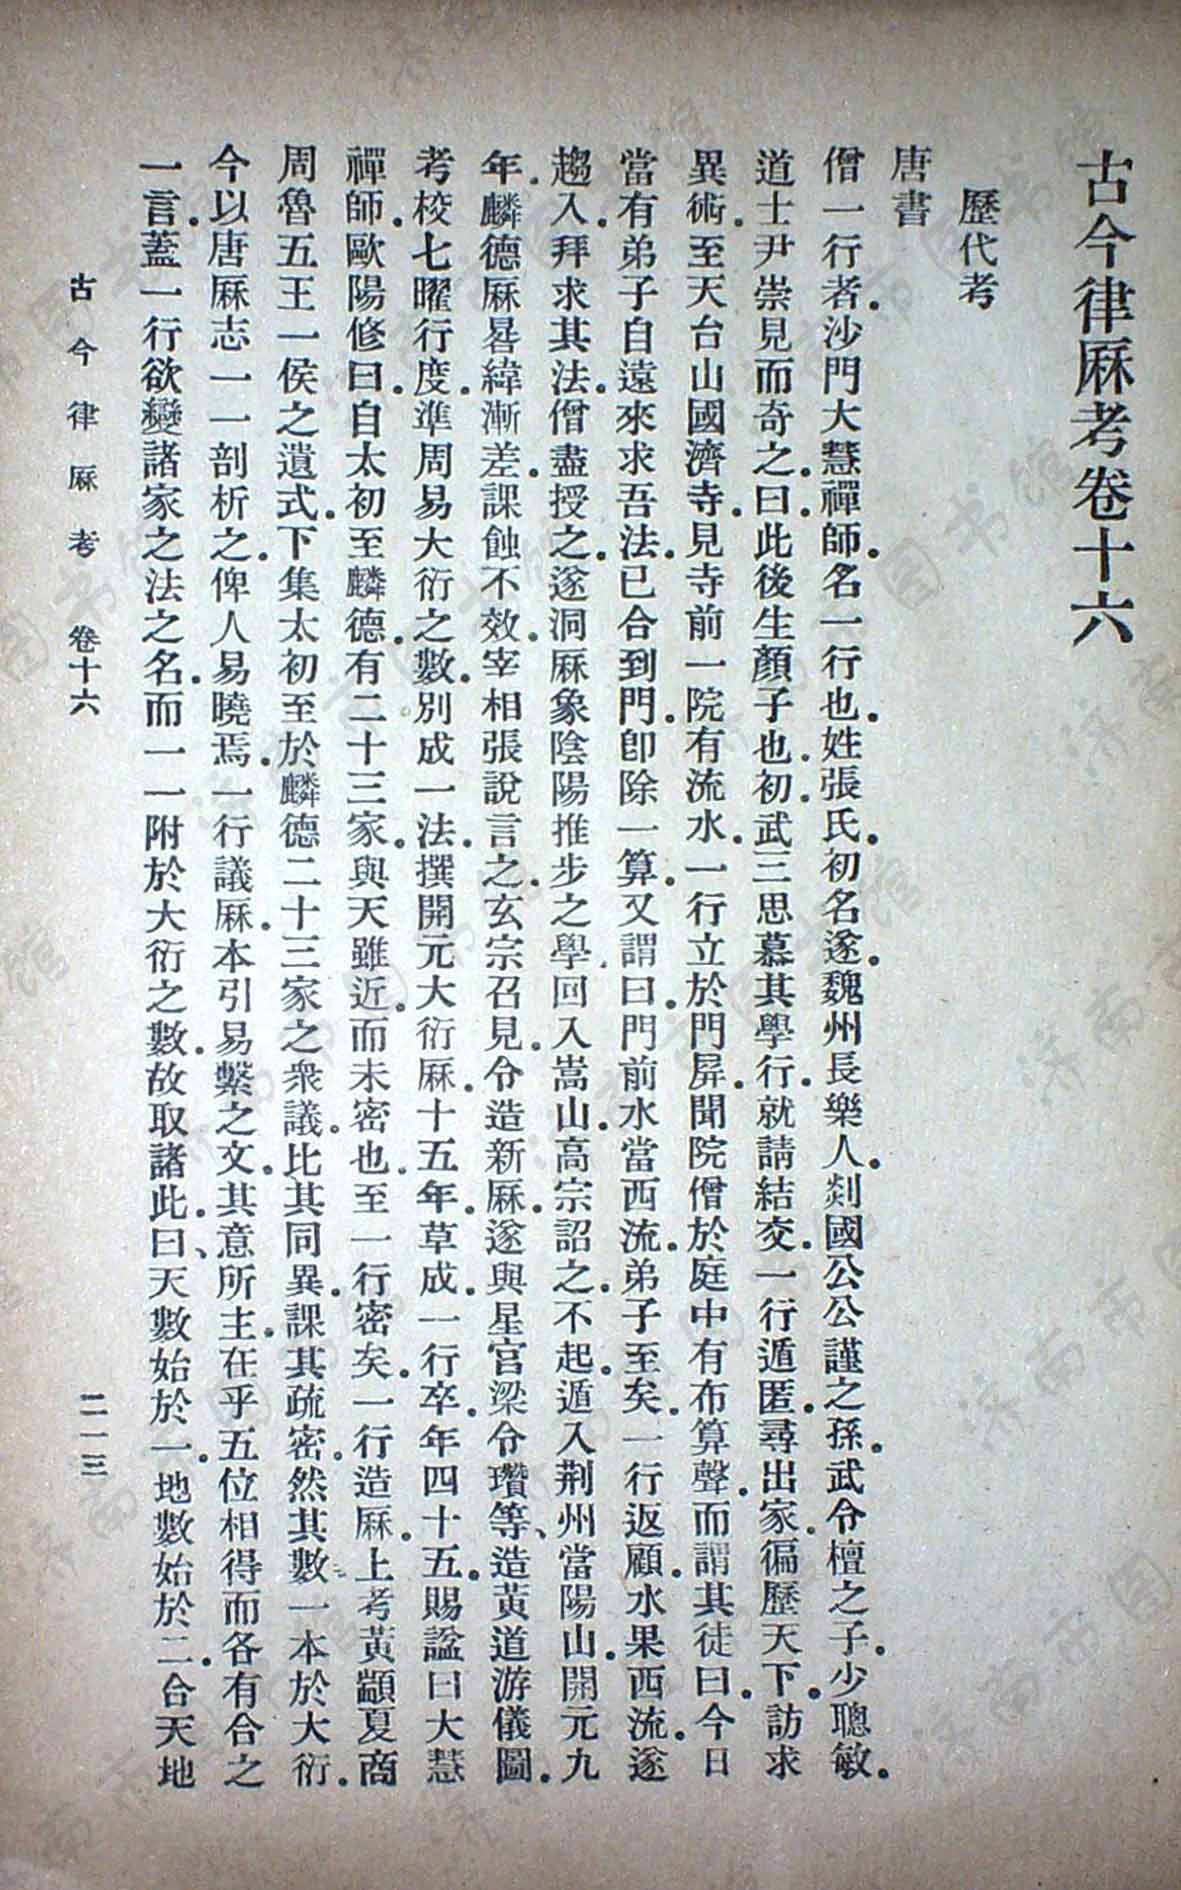 古今律厤考卷十六
歷代考
唐書
僧一行者。沙門大慧禪師。名一行也。姓張氏。初名遂。魏州長樂人。剡國公公謹之孫。武令檀之子。少聰敏。
道士尹崇見而奇之。曰此後生顏子也。初武三思慕其學行。就請結交。一行遁匿。尋出家。徧歷天下。訪求
異術。至天台山國濟寺。見寺前一院有流水。一行立於門屏。聞院僧於庭中有布算聲。而謂其徒曰。今日
當有弟子自遠來求吾法。已合到門。卽除一算。又謂曰。門前水當西流。弟子至矣。一行返顧。水果西流。遂
趨入。拜求其法。僧盡授之。遂洞厤象陰陽推步之學。回入嵩山。高宗詔之。不起。遁入荆州當陽山。開元九
年。麟德厤晷緯漸差。課蝕不效。宰相張說言之。玄宗召見。令造新厤。遂與星官梁令瓚等、造黃道游儀圖。
考校七曜行度。準周易大衍之數。別成一法。撰開元大衍厤。十五年。草成。一行卒。年四十五。賜諡曰大慧
禪師。歐陽修曰。自太初至麟德。有二十三家。與天雖近。而未密也。至一行密矣。一行造厤。上考黃顓夏商
周魯五王一侯之遺式。下集太初至於麟德二十三家之衆議。比其同異。課其疏密。然其數一本於大衍。
今以唐厤志一一剖析之。俾人易曉焉。一行議厤。本引易繫之文。其意所主。在乎五位相得而各有合之
一言。蓋一行欲變諸家之法之名。而一一附於大衍之數。故取諸此。曰、天數始於一。地數始於二。合天地
古今律厤考 卷十六
二一三
济南市图书馆